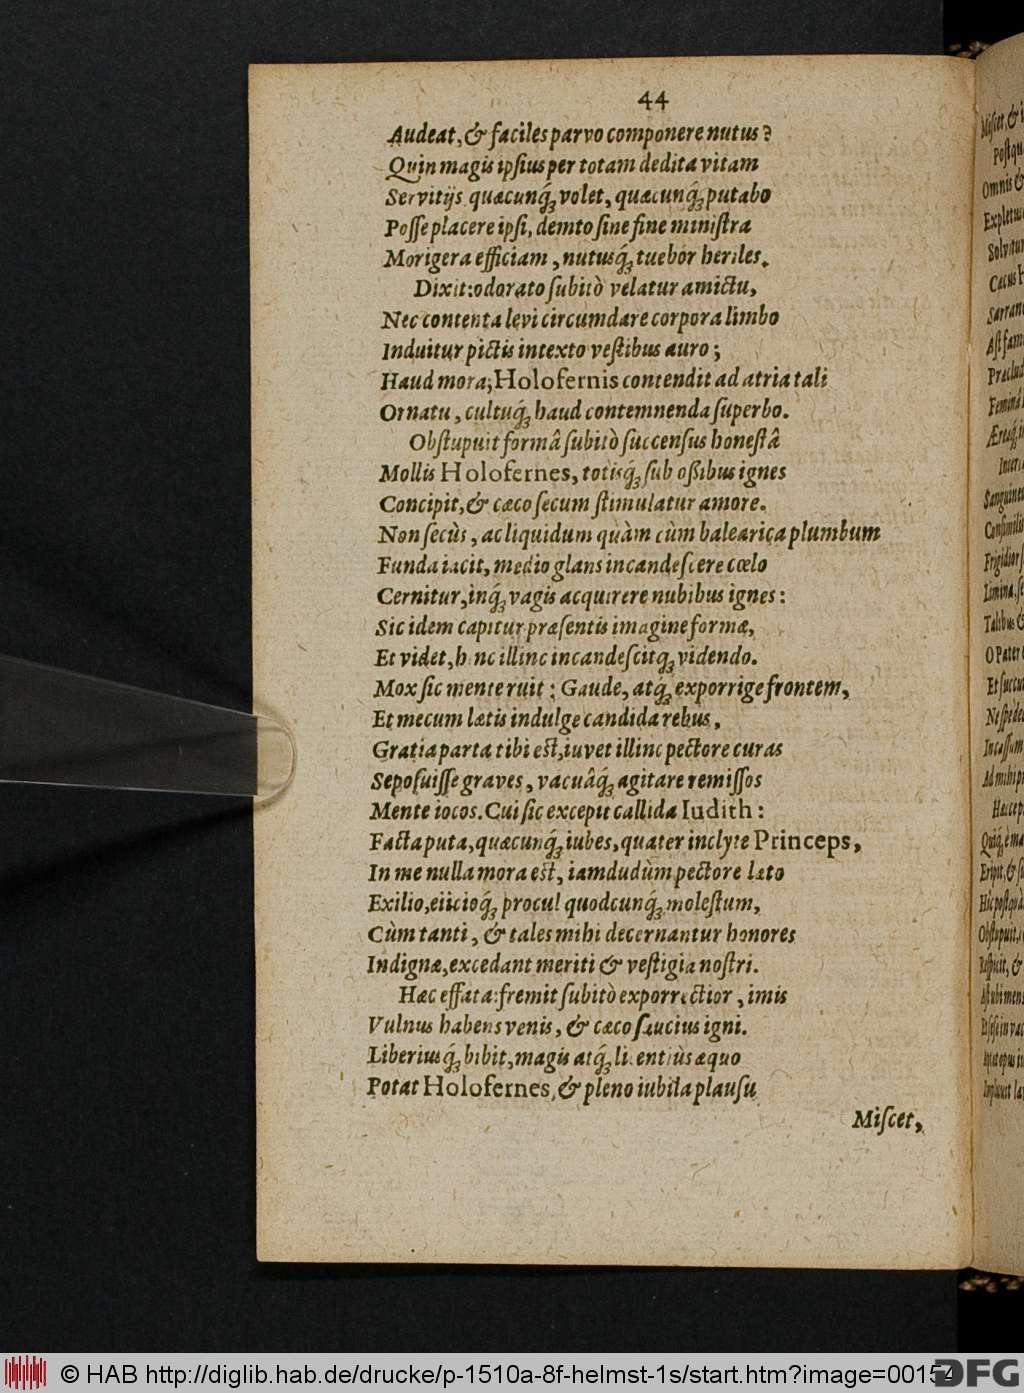 44
Audeat, & faciles parvo componere nutus?
Quin magis ipsius per totam dedita vitam
Servitijs quæcunq́ꝫ volet, quæcunq́ꝫ putabo
Posse placere ipsi, demto sine fine ministra
Morigera efficiam, nutusq́ꝫ tuebor heriles.
Dixit: odorato subitò velatur amictu,
Nec contenta levi circumdare corpora limbo
Induitur pictis intexto vestibus auro;
Haud mora; Holofernis contendit ad atria tali
Ornatu, cultuq́ꝫ haud contemnenda superbo.
Obstupuit formâ subitò succensus honestâ
Mollis Holofernes, totisq́ꝫ sub oßibus ignes
Concipit, & cæco secum stimulatur amore.
Non secùs, ac liquidum quàm cùm balearica plumbum
Funda iacit, medio glans incandescere cœlo
Cernitur, inq́ꝫ vagis acquirere nubibus ignes:
Sic idem capitur præsentis imagine formæ,
Et videt, hinc illinc incandescitq́ꝫ videndo.
Mox sic mente ruit: Gaude, atq́ꝫ exporrige frontem,
Et mecum lætis indulge candida rebus,
Gratia parta tibi est, iuvet illinc pectore curas
Seposuisse graves, vacuâq́ꝫ agitare remissos
Mente iocos. Cui sic excepit callida Iudith:
Facta puta, quæcunq́ꝫ iubes, quater inclyte Princeps,
In me nulla mora est, iamdudùm pectore læto
Exilio, eiicioq́ꝫ procul quodcunq́ꝫ molestum,
Cùm tanti, & tales mihi decernantur honores
Indignæ, excedant meriti & vestigia nostri.
Hæc effata: fremit subitò exporrectior, imis
Vulnus habens venis, & cæco saucius igni.
Liberiusq́ꝫ bibit, magis atq́ꝫ licentiùs æquo
Potat Holofernes, & pleno iubila plausu
Miscet,
Miscet, &
Postqu
Omnis &
Expletus
Solvitur
Cæcus
Sarran
Ast fam
Præclud
Femin
Æreaq́ꝫ
Inter
Sanguine
Consimili
Frigidior
Limina, se
Talibus &
O Pater
Et succu
Ne sped
Incassum
Ad mihi
Hæc ep
Quiq́ꝫ
Eripit, &
Hic postqu
Obstupuit,
Respicit, &
Ast ubi mens
© HAB http://diglib.hab.de/drucke/p-1510a-8f-helmst-1s/start.htm?image=00154
DFG